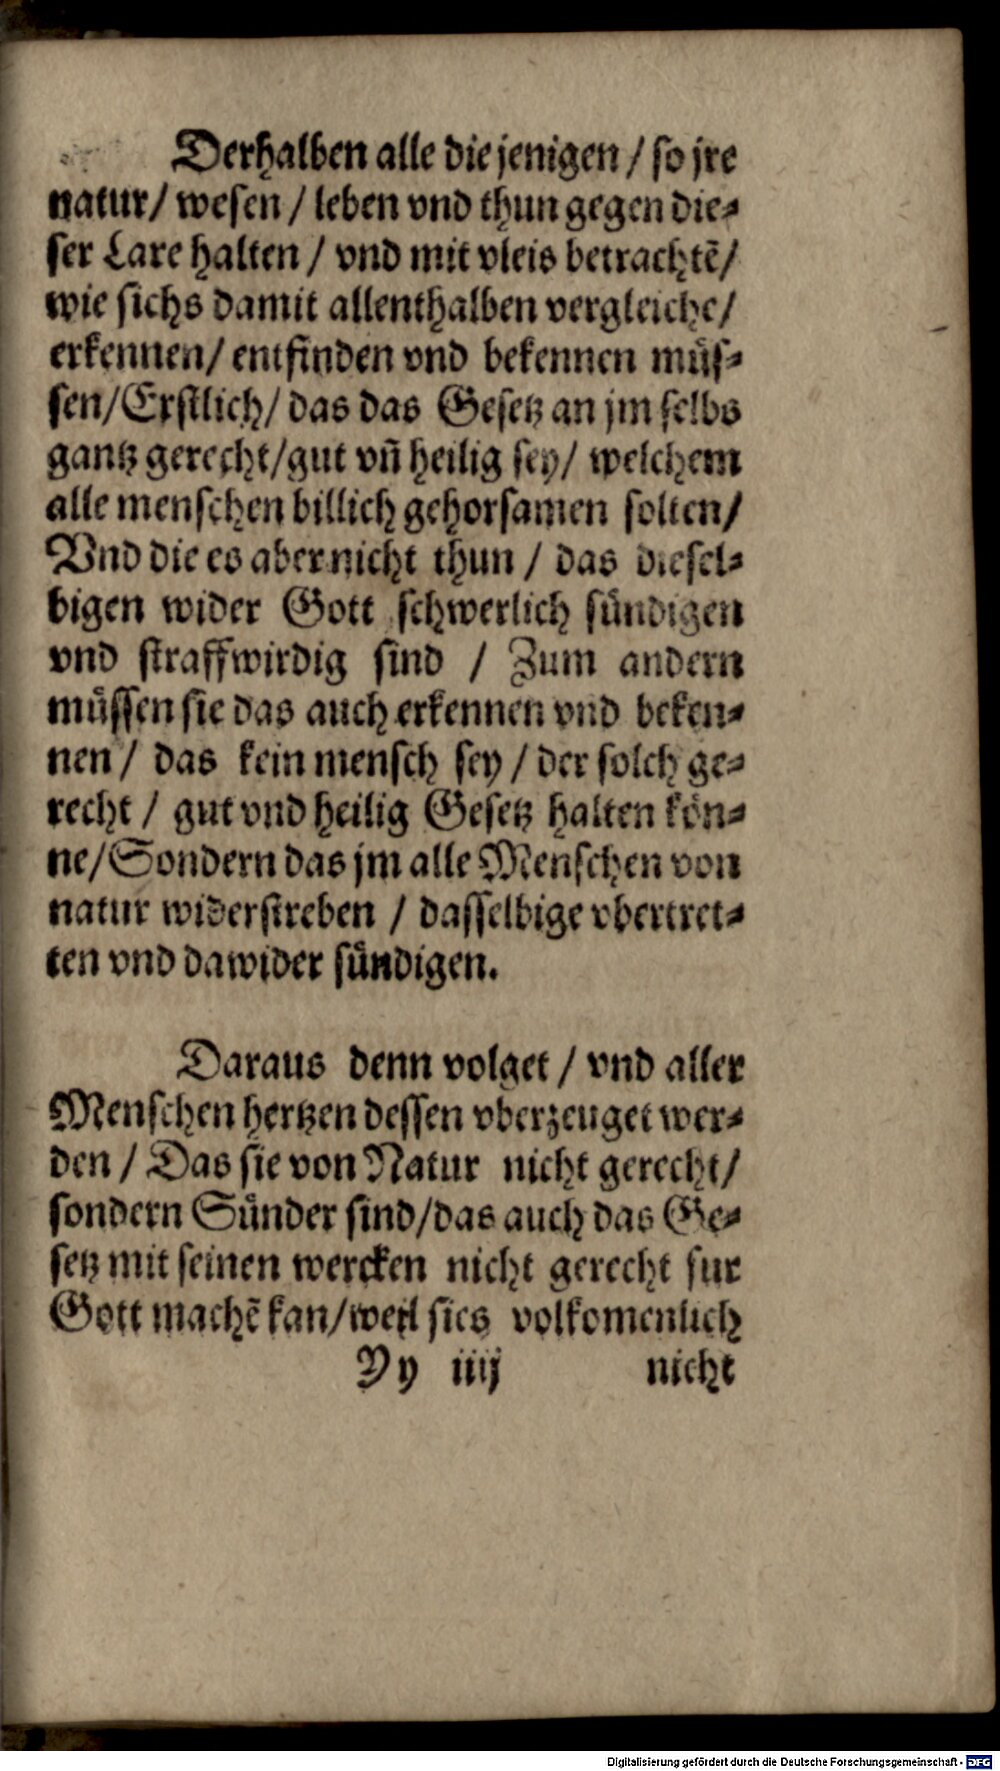 Derhalben alle die jenigen / so jre
natur / wesen / leben vnd thun gegen die⸗
ser Lare halten / vnd mit vleis betrachtē /
wie sichs damit allenthalben vergleiche /
erkennen / entfinden vnd bekennen müs⸗
sen / Erstlich / das das Gesetz an jm selbs
gantz gerecht / gut vn̄ heilig sey / welchem
alle menschen billich gehorsamen solten /
Vnd die es aber nicht thun / das diesel⸗
bigen wider Gott schwerlich sündigen
vnd straffwirdig sind / Zum andern
müssen sie das auch erkennen vnd beken⸗
nen / das kein mensch sey / der solch ge⸗
recht / gut vnd heilig Gesetz halten kön⸗
ne / Sondern das jm alle Menschen von
natur widerstreben / dasselbige vbertret⸗
ten vnd dawider sündigen.
Daraus denn volget / vnd aller
Menschen hertzen dessen vberzeuget wer⸗
den / Das sie von Natur nicht gerecht /
sondern Sünder sind / das auch das Ge⸗
setz mit seinen wercken nicht gerecht fur
Gott machē kan / weil sies volkomenlich
Yy iiij nicht
Digitalisierung gefördert durch die Deutsche Forschungsgemeinschaft - DFG